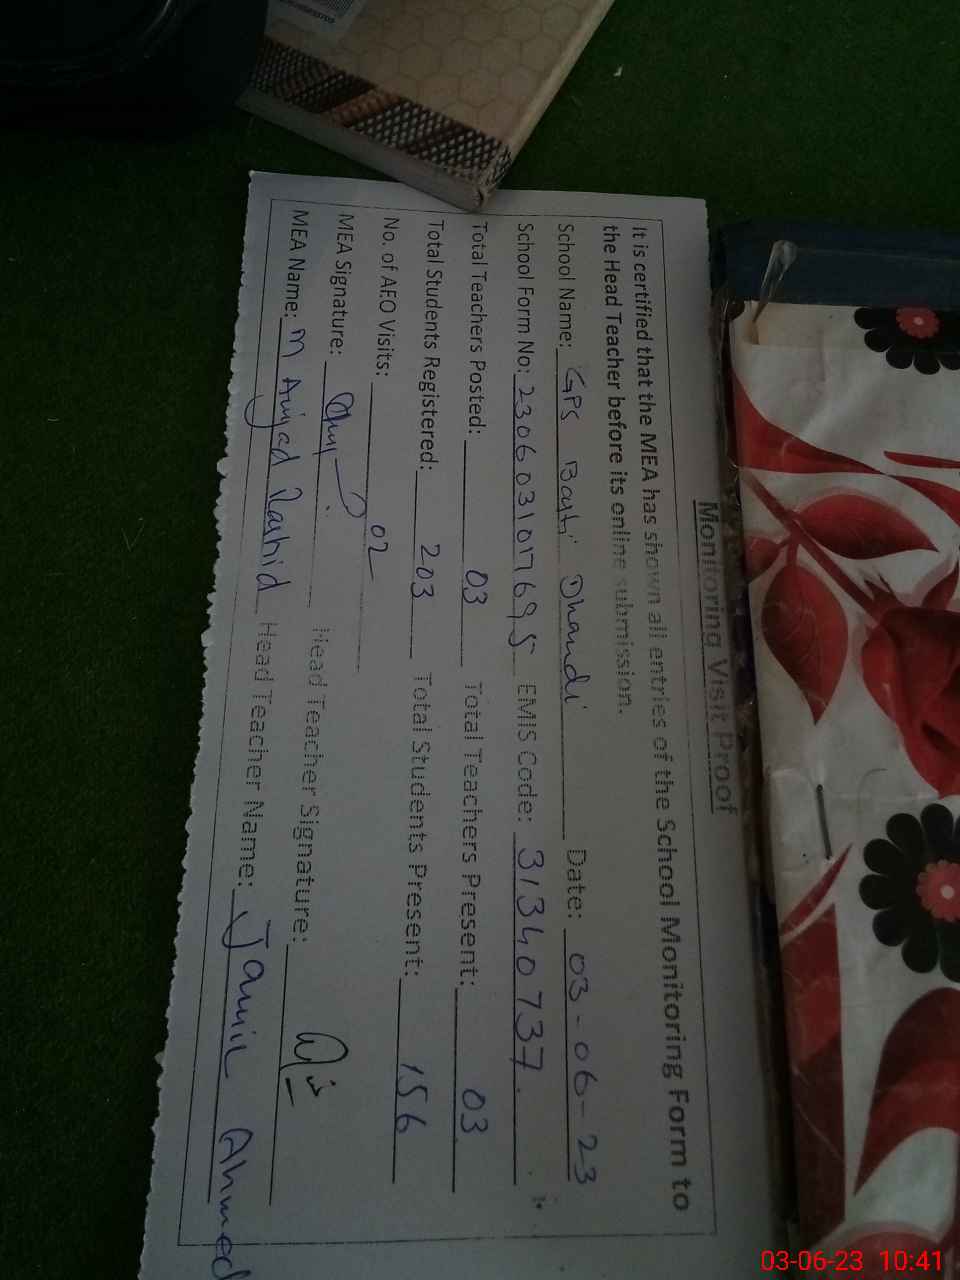 Monitoring Visit Proof
It is certified that the MEA has shown all entries of the School Monitoring Form to
the Head Teacher before its online submission.
School Name: GPS Basti Dhandi Date: 03-06-23
School Form No: 2306031077695 EMIS Code: 31340737.
Total Teachers Posted: 03 Total Teachers Present: 03
Total Students Registered: 203 Total Students Present: 156
No. of AEO Visits: 02
MEA Signature: Head Teacher Signature:
MEA Name: M Amjad Rashid Head Teacher Name: Jamil Ahmed
03-06-23 10:41